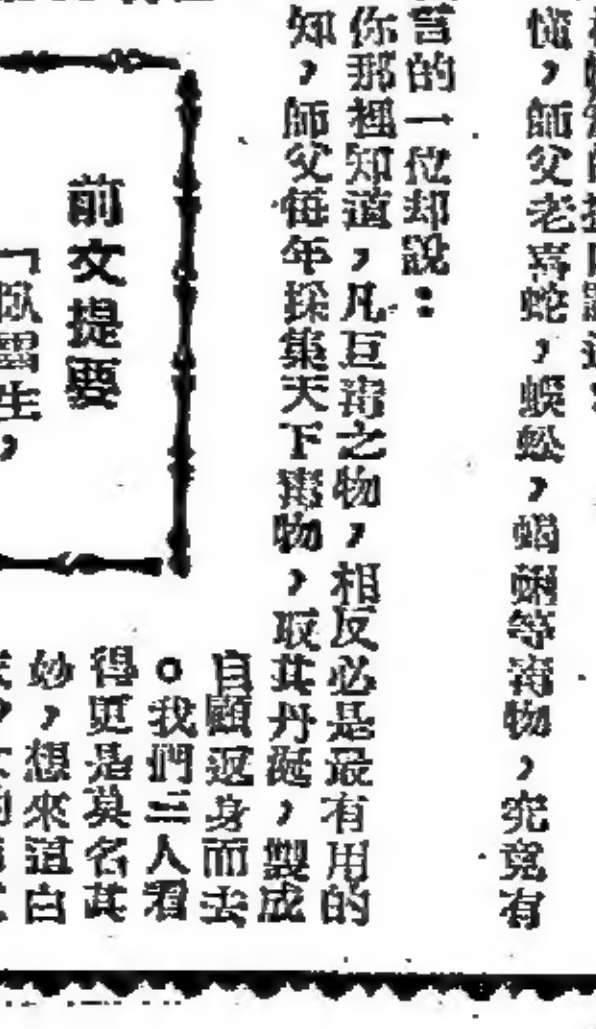 懂，師父老喜蛇，蜈蚣，蝎蜊等毒物，究竟有
言的一位却說：
你那裡知道，凡巨毒之物，相反必是最有用的
知，師父每年採集天下毒物，取其丹涎，製成
前文提要
「臥雲生，
自顧返身而去
。我們三人看
得更是莫名其
妙，想來這白